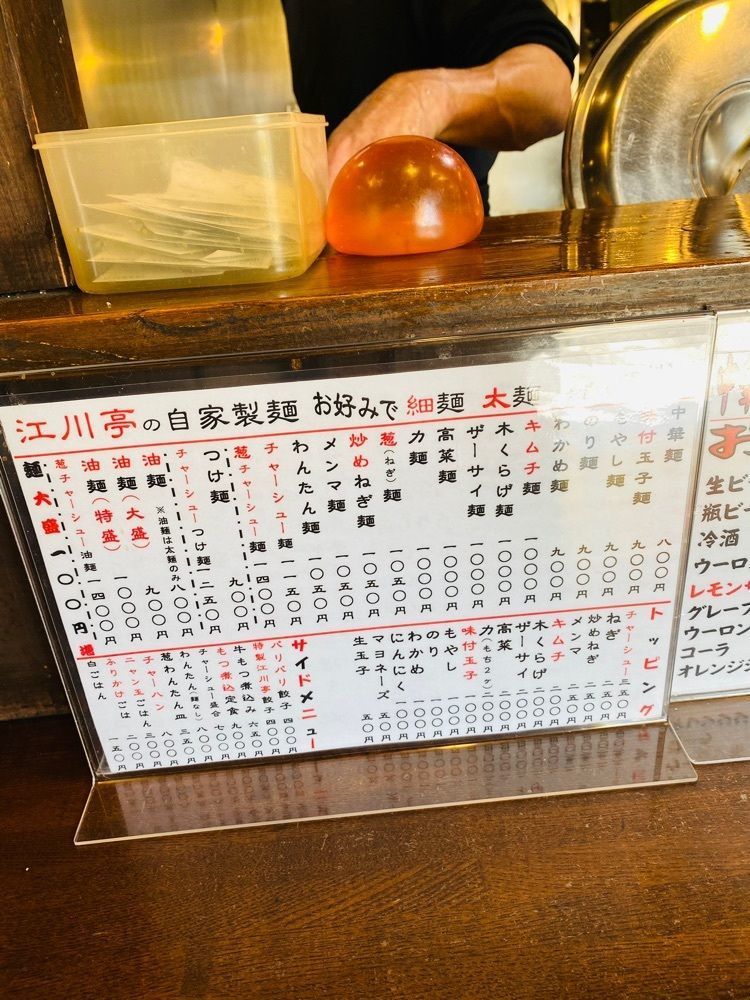 江川亭の自家製麺 お好みで細麺 太麺
中華麺 八〇〇円
味付玉子麺 九〇〇円
もやし麺 九〇〇円
のり麺 九〇〇円
わかめ麺 九〇〇円
キムチ麺 一〇〇〇円
木くらげ麺 一〇〇〇円
ザーサイ麺 一〇〇〇円
高菜麺 一〇〇〇円
力麺 一〇〇〇円
葱(ねぎ)麺
炒めねぎ麺
メンマ麺
わんたん麺
チャーシュー麺
葱チャーシュー麺 一四〇〇円
つけ麺 九〇〇円
チャーシューつけ麺 一二五〇円
油麺 ※油麺は太麺のみ 八〇〇円
油麺(大盛) 九〇〇円
油麺(特盛) 一〇〇〇円
葱チャーシュー油麺 一四〇〇円
麺大盛 一〇〇円増
トッピング
チャーシュー 三五〇円
ねぎ 二五〇円
炒めねぎ 二五〇円
メンマ
キムチ 二〇〇円
木くらげ 二〇〇円
ザーサイ 二〇〇円
高菜 二〇〇円
力(もち2ヶ) 二〇〇円
味付玉子 一〇〇円
もやし 一〇〇円
のり 一〇〇円
わかめ 一〇〇円
にんにく 一〇〇円
マヨネーズ 五〇円
生玉子 五〇円
サイドメニュー
パリパリ餃子 四〇〇円
特製江川亭餃子 四〇〇円
牛もつ煮込み 六五〇円
もつ煮込定食 九〇〇円
チャーシュー盛合 七〇〇円
わんたん(麺なし) 八〇〇円
葱わんたん皿 三五〇円
チャーハン
ニャン玉ごはん 三〇〇円
ふりかけごはん 二〇〇円
白ごはん 一五〇円
生ビ
瓶ビ
冷酒
ウーロ
レモン
グレープ
ウーロン
コーラ
オレンジ